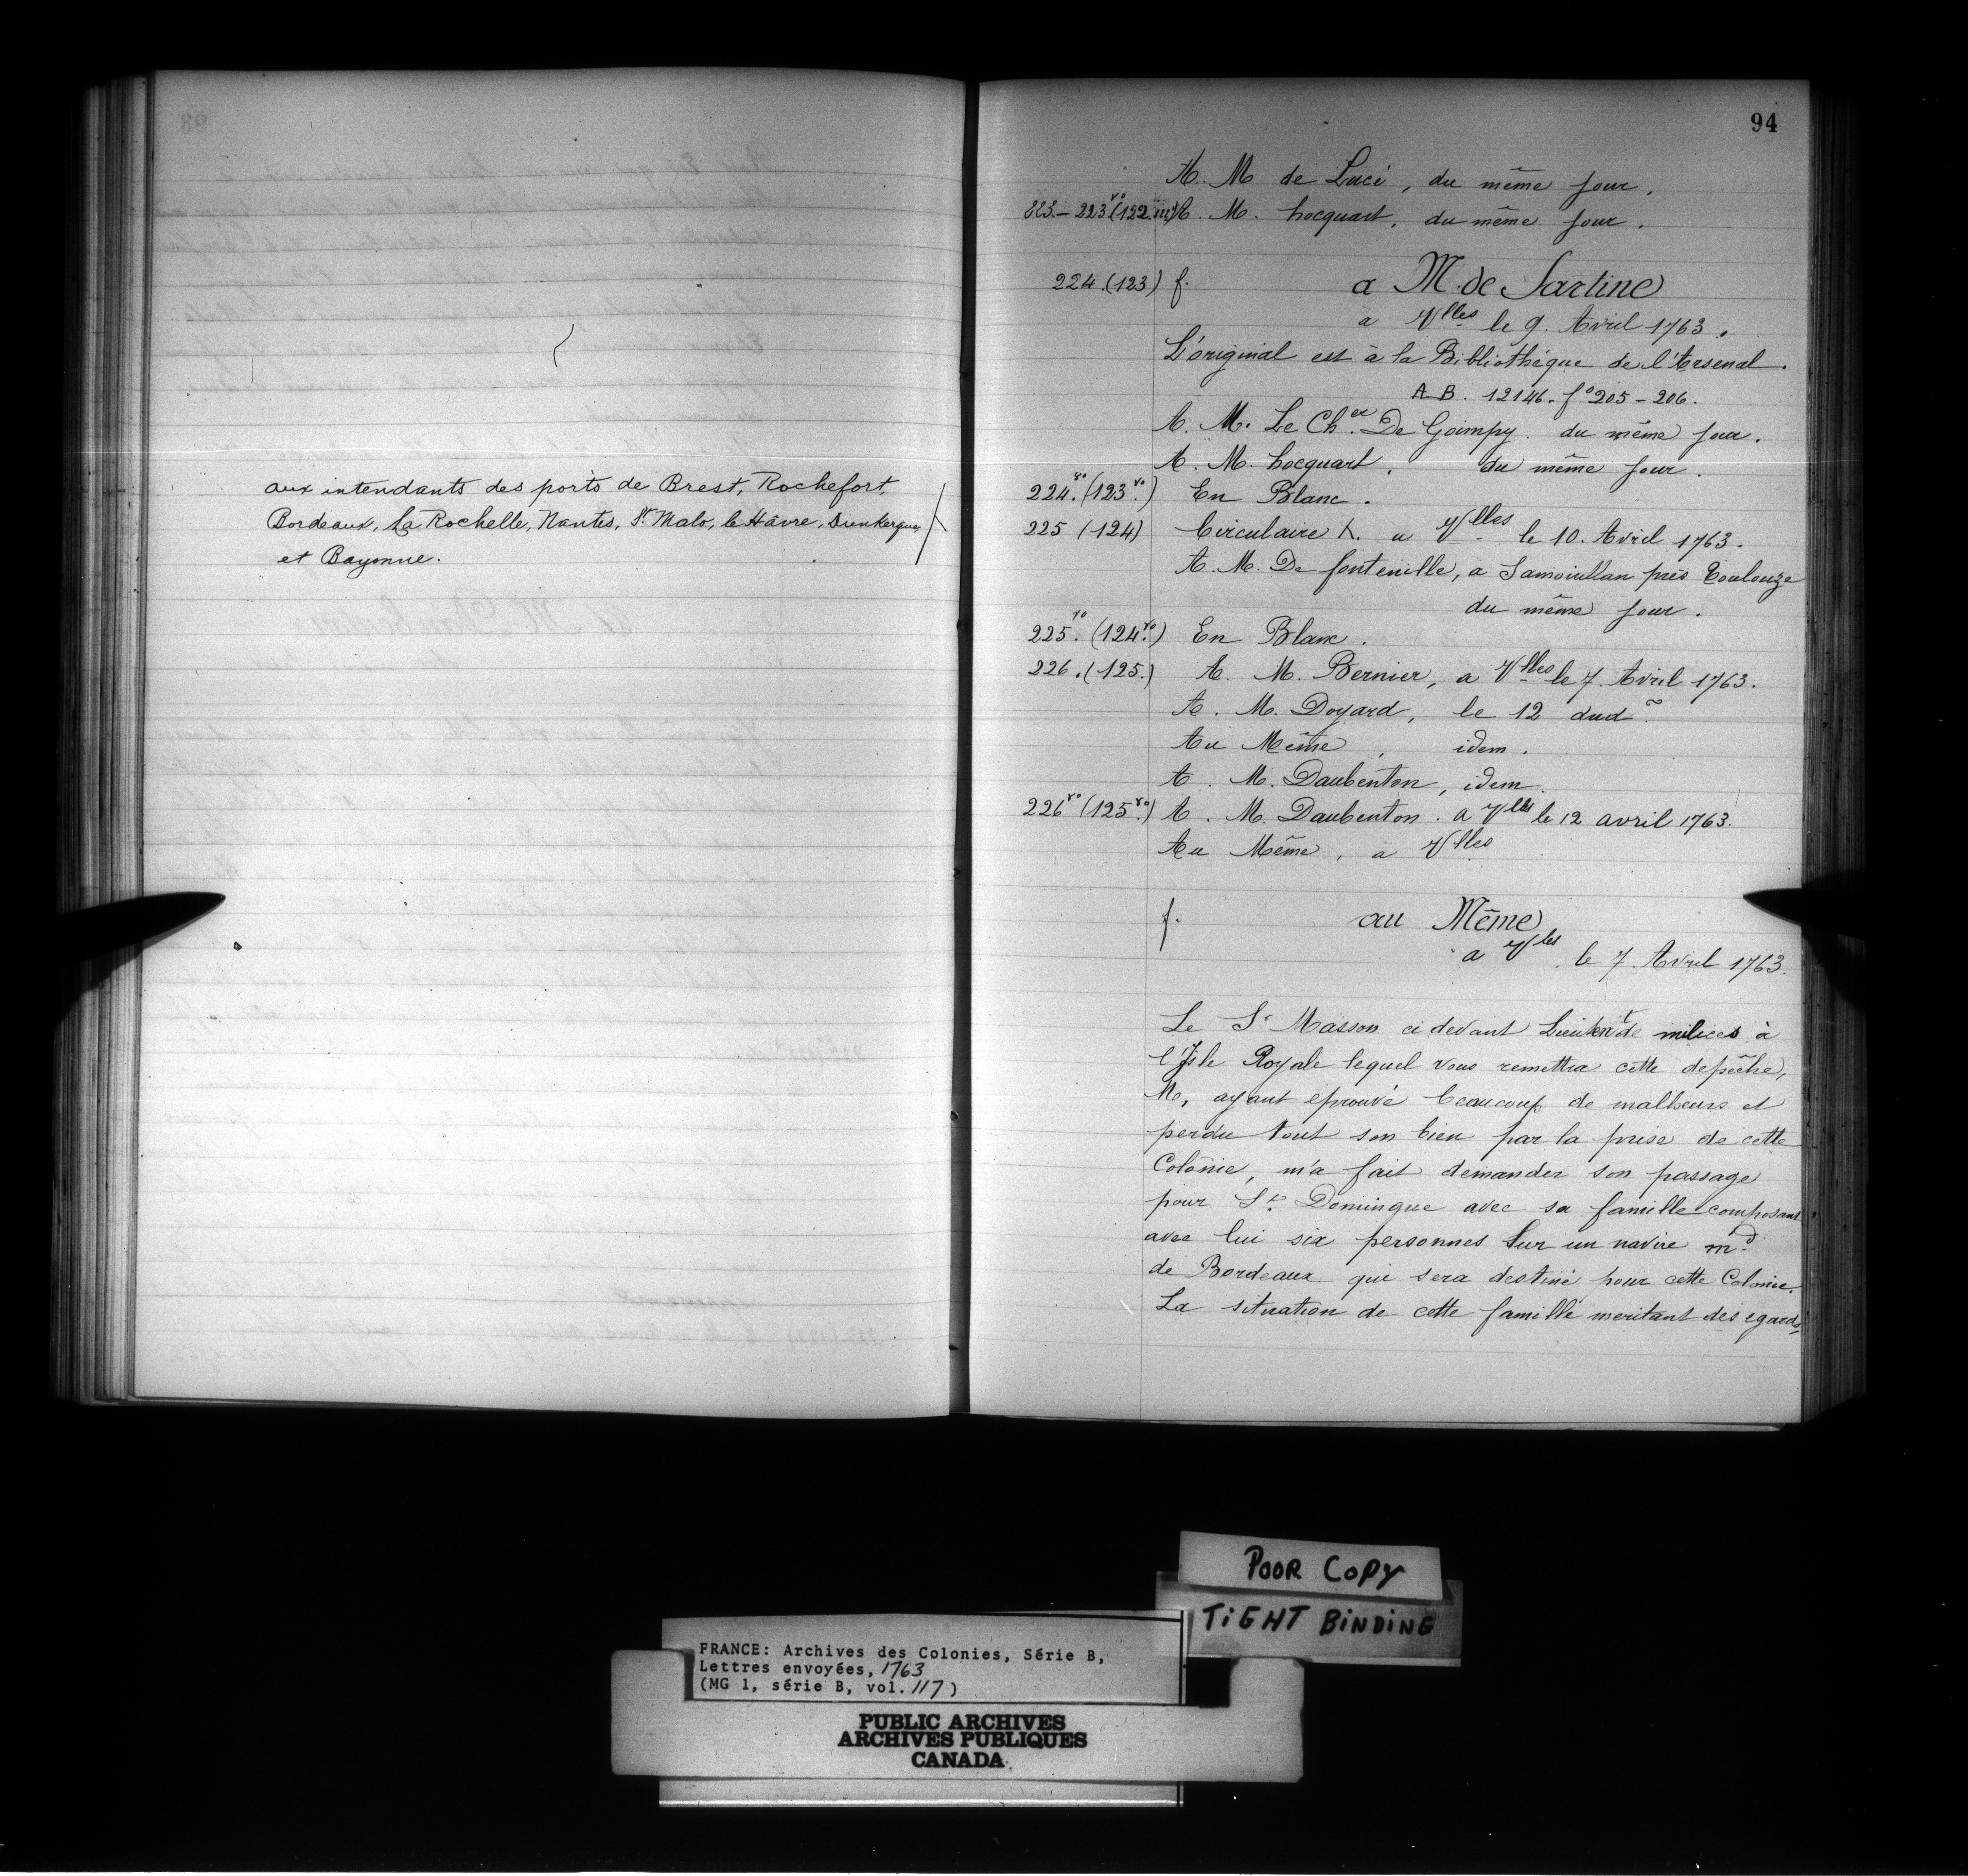 aux intendants des ports de Brest, Rochefort,
Bordeaux, La Rochelle, Nantes, St Malo, le Hâvre, Dunkerque,
et Bayonne.
94
A. M de Luci, du même jour.
223 vo (122 A. M. hocquart, du même jour.
224.(123) f. a M. de Sartine
a Vlles le 9. Avril 1763.
L'original est à la Bibliothéque de l'Arsenal.
A B. 12146. fo 205-206.
A. M. Le Cher. De Goimpy. du même jour.
A. M. hocquart. du même jour.
224 vo. (123 vo.) En Blanc.
225 (124) Circulaire X. a Vlles le 10. Avril 1763.
A. M. De fontenille, a Samouillan près Toulouze
du même jour.
225 vo. (124 vo.) En Blanc.
226.(125.) A. M. Bernier, a Vlles le 7. Avril 1763.
A. M. Doyard, le 12 dud.
Au Même, idem.
A. M. Daubenton, idem.
226 vo (125 vo.) A. M. Daubenton. a Vlles le 12 avril 1763.
Au Même, a Vlles
f. au Même
a Vlles, le 7. Avril 1763.
Le Sr Masson ci devant Lieutent de milices à
l'Isle Royale lequel vous remettra cette depêche,
M, ayant eprouvé beaucoup de malheurs et
perdu tout son bien par la prise de cette
Colonie, m'a fait demander son passage
pour St. Domingue avec sa famille composant
avec lui six personnes Sur un navire md.
de Bordeaux qui sera destiné pour cette Colonie.
La situation de cette famille meritant des egards,
POOR COPY
TIGHT BINDING
FRANCE: Archives des Colonies, Série B,
Lettres envoyées, 1763
(MG 1, série B, vol. 117)
PUBLIC ARCHIVES
ARCHIVES PUBLIQUES
CANADA